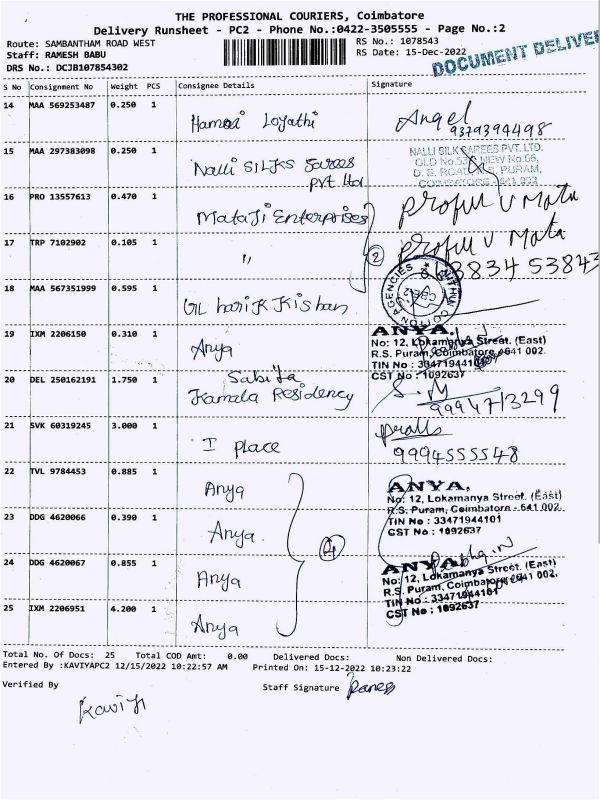 THE PROFESSIONAL COURIERS, Coimbatore
Delivery Runsheet - PC2 - Phone No.:0422-3505555 - Page No.:2
Route: SAMBANTHAM ROAD WEST
Staff: RAMESH BABU
DRS No.: DCJB107854302
RS No.: 1078543
RS Date: 15-Dec-2022
DOCUMENT DELIVER
S No Consignment No Weight PCS Consignee Details Signature
14 MAA 569253487 0.250 1 Angel
9379394498
15 MAA 297383098 0.250 1 Nalli Silks Sarees
Pvt Ltd
NALLI SILK SAREES PVT. LTD.
OLD No.53, NEW No.66,
D. B. ROAD, R.S. PURAM,
COIMBATORE - 641 002
16 PRO 13557613 0.470 1 Mataji Enterprises
17 TRP 7102902 0.105 1 "
2
18 MAA 567351999 0.595 1
COTTON AGENCIES
CBE-2
19 IXM 2206150 0.310 1 Anya
ANYA,
No: 12, Lokamanya Street. (East)
R.S. Puram, Coimbatore - 641 002.
TIN No : 33471944101
CST No : 1092637
20 DEL 250162191 1.750 1 Sabita
Kamala Residency
S. M
9994713299
21 SVK 60319245 3.000 1 I place
9994555548
22 TVL 9784453 0.885 1 Anya
ANYA,
No: 12, Lokamanya Street. (East)
R.S. Puram, Coimbatore - 641 002.
TIN No : 33471944101
CST No : 1092637
23 DDG 4620066 0.390 1 Anya.
4
24 DDG 4620067 0.855 1 Anya
ANYA,
No: 12, Lokamanya Street. (East)
R.S. Puram, Coimbatore - 641 002.
TIN No : 33471944101
CST No : 1092637
25 IXM 2206951 4.200 1 Anya
Total No. Of Docs: 25 Total COD Amt: 0.00 Delivered Docs: Non Delivered Docs:
Entered By :KAVIYAPC2 12/15/2022 10:22:57 AM Printed On: 15-12-2022 10:23:22
Verified By Staff Signature